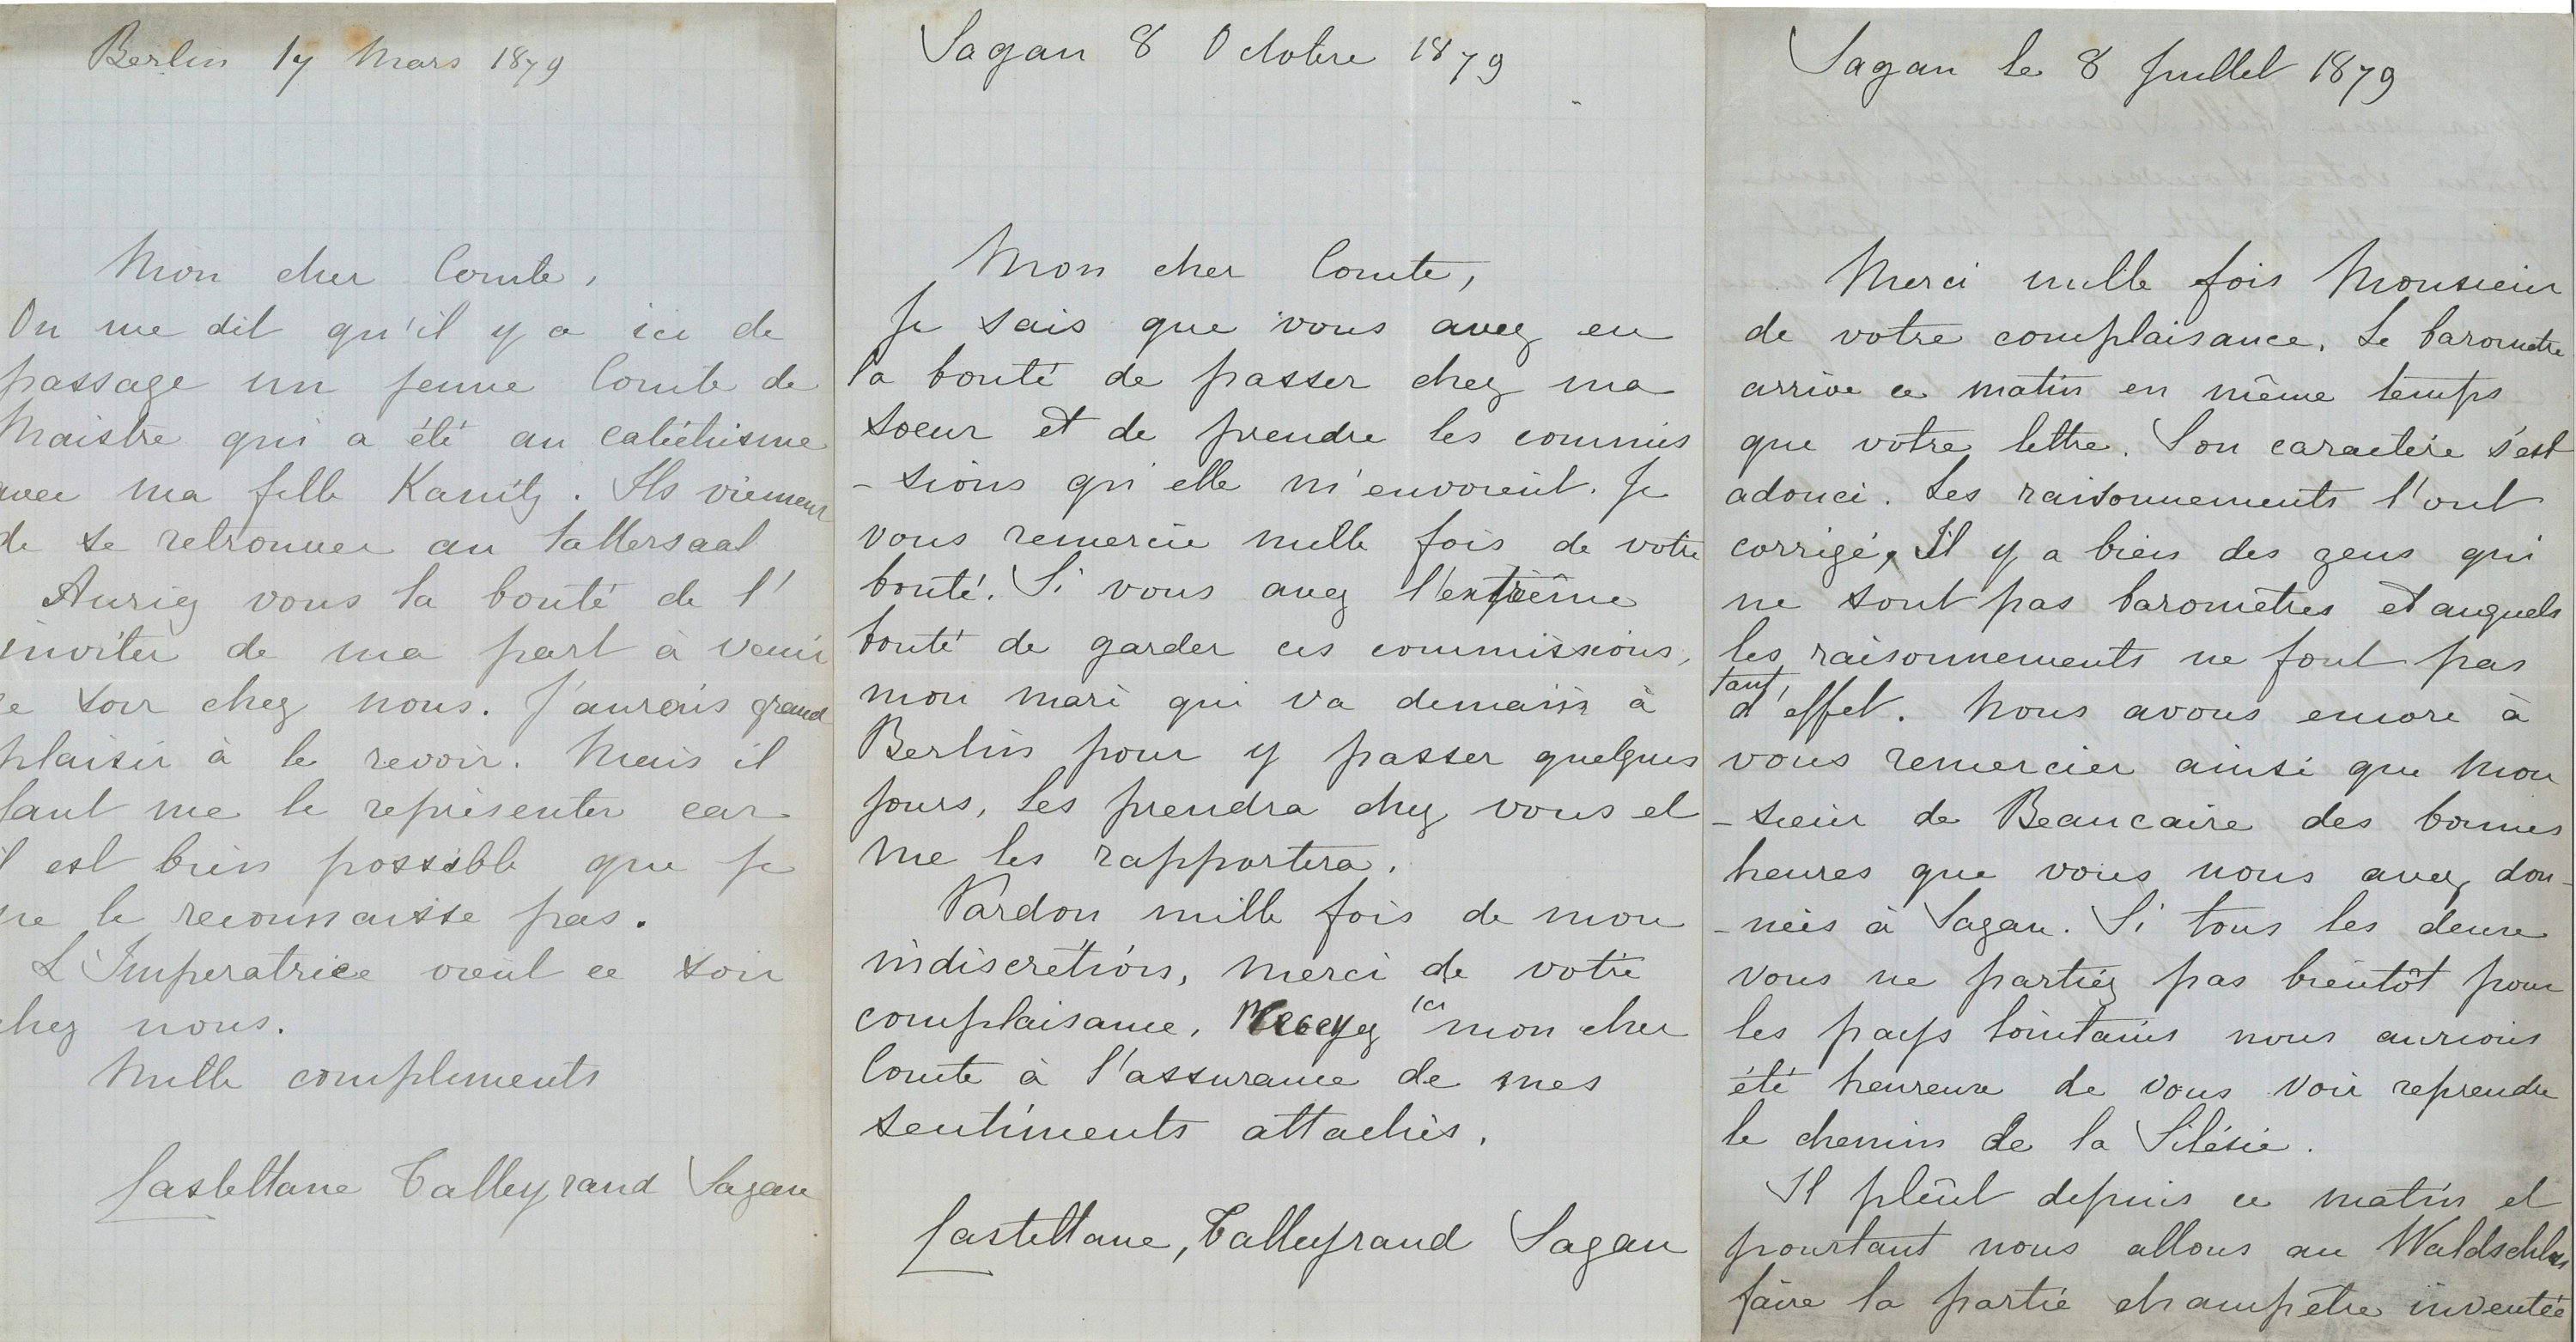 Berlin 17 Mars 1879
Mon cher Comte,
On me dit qu'il y a ici de
passage un jeune Comte de
Maistre qui a été au catéchisme
avec ma fille Kanitz. Ils viennent
de se retrouver au Tattersaal
Auriez vous la bonté de l'
inviter de ma part à venir
ce soir chez nous. J'aurais grand
plaisir à le revoir. Mais il
faut me le représenter car
il est bien possible que je
ne le reconnaisse pas.
L'Imperatrice vient ce soir
chez nous.
Mille compliments
Castellane Talleyrand Sagan
Sagan 8 Octobre 1879
Mon cher Comte,
Je sais que vous avez eu
la bonté de passer chez ma
soeur et de prendre les commis
-sions qu'elle m'envoient. Je
vous remercie mille fois de votre
bonté. Si vous avez l'extrême
bonté de garder ces commissions,
mon mari qui va demain à
Berlin pour y passer quelques
jours, les prendra chez vous et
me les rapportera.
Pardon mille fois de mon
indiscrétion, merci de votre
complaisance. ici mon cher
Comte à l'assurance de mes
sentiments attachés.
Castellane, Talleyrand Sagan
Sagan le 8 Juillet 1879
Merci mille fois Monsieur
de votre complaisance. Le barometre
arrive ce matin en même temps
que votre lettre. Son caractère s'est
adouci. Les raisonnements l'ont
corrigé, Il y a bien des gens qui
ne sont pas baromètres et auquels
les raisonnements ne font pas
tant d'effet. Nous avons encore à
vous remercier ainsi que Mon
-sieur de Beaucaire des bonnes
heures que vous nous avez don-
-nées à Sagan. Si tous les deux
vous ne partiez pas bientôt pour
les pays lointains nous aurions
été heureux de vous voir reprendre
le chemin de la Silésie.
Il pleut depuis ce matin et
pourtant nous allons au Waldschloss
faire la partie champêtre inventée